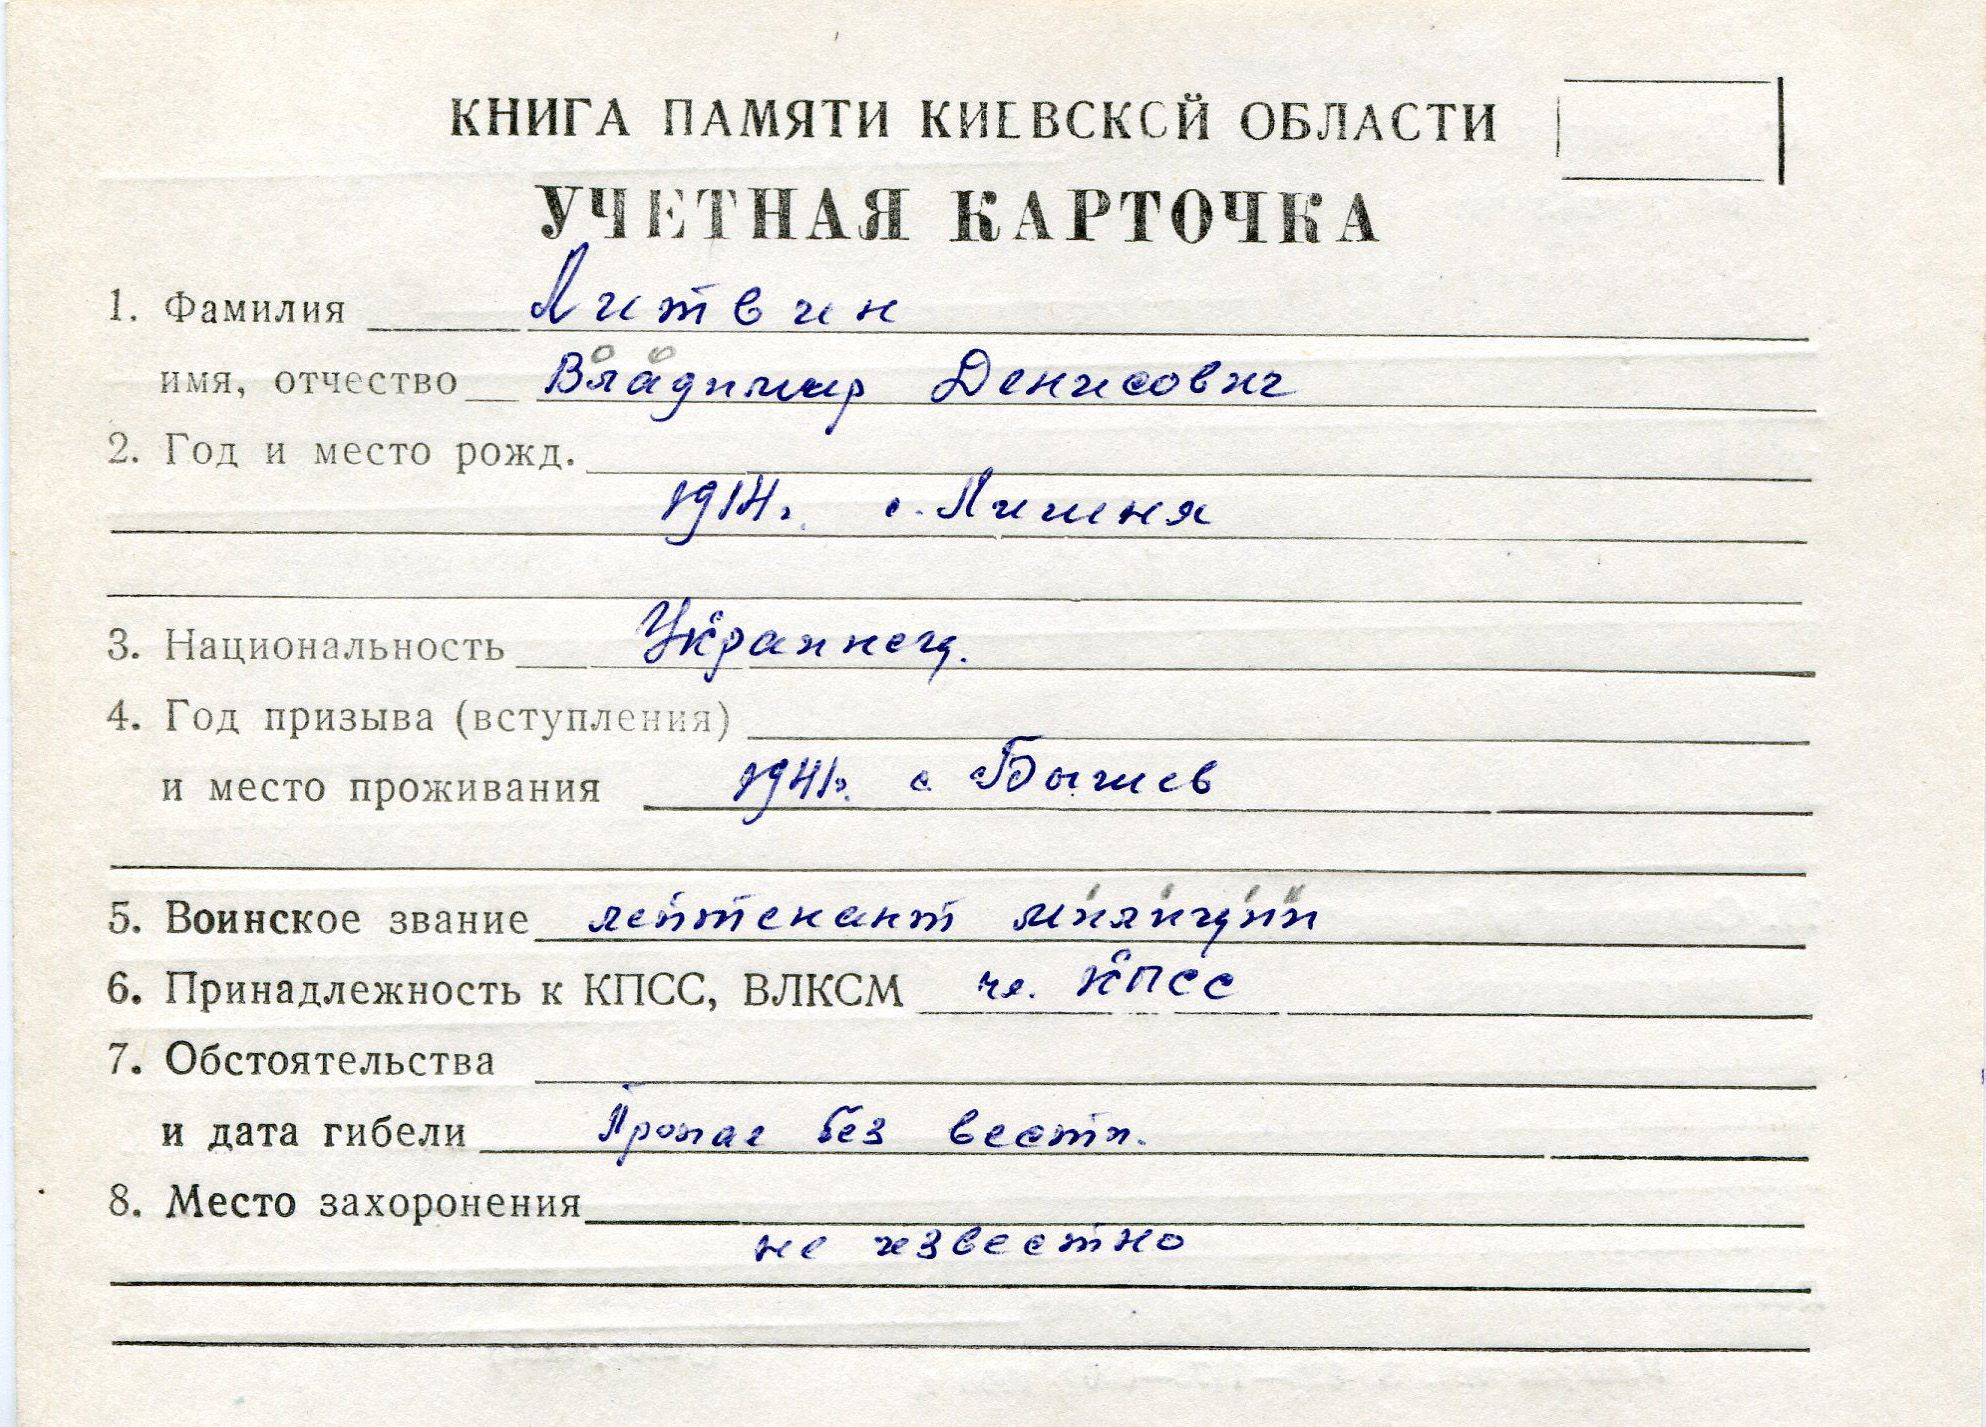 КНИГА ПАМЯТИ КИЕВСКОЙ ОБЛАСТИ
УЧЕТНАЯ КАРТОЧКА
1. Фамилия Литвин
имя, отчество Владимир Денисович
2. Год и место рожд.
1914г. с. Лишня
3. Национальность Украинец.
4. Год призыва (вступления)
и место проживания 1941г. с. Бышев
5. Воинское звание лейтенант милиции
6. Принадлежность к КПСС, ВЛКСМ чл. КПСС
7. Обстоятельства
и дата гибели Пропал без вести.
8. Место захоронения
не известно